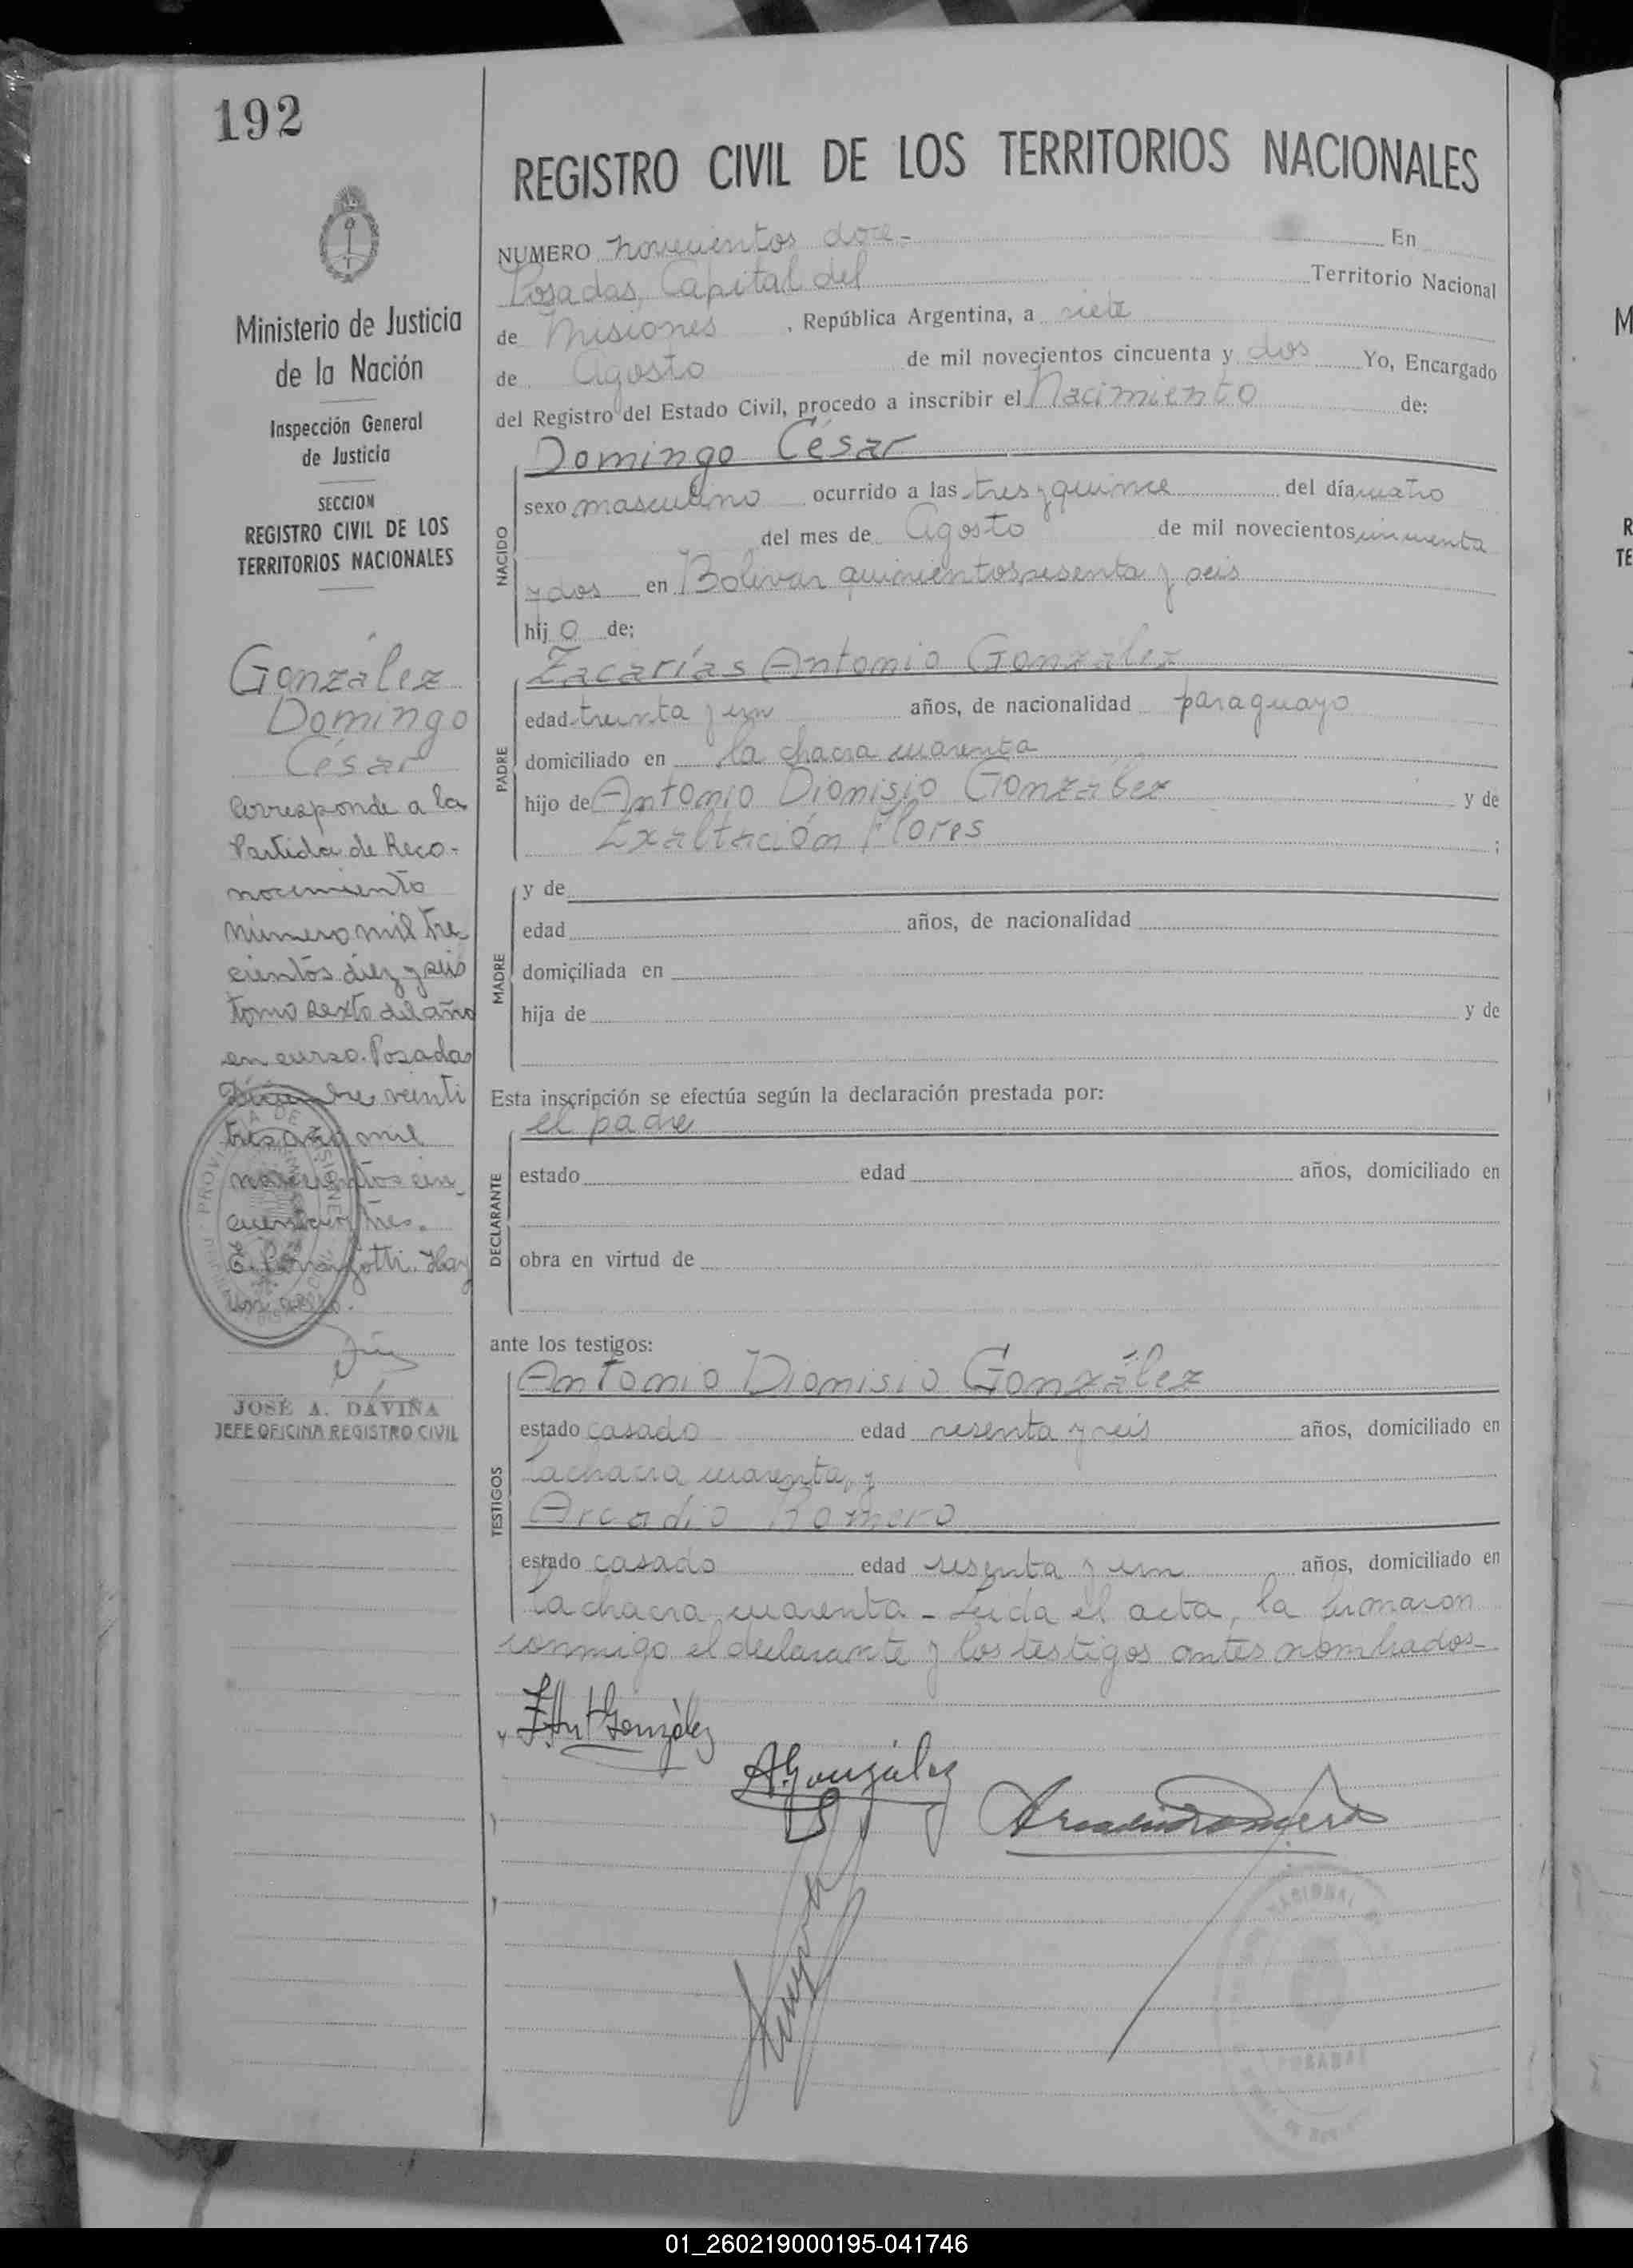 192
Ministerio de Justicia
de la Nación
Inspección General
de Justicia
SECCION
REGISTRO CIVIL DE LOS
TERRITORIOS NACIONALES
González
Domingo
César
Corresponde a la
Partida de Reco-
nocimiento
número mil tre
cientos diez y seis
tomo sexto del año
en curso. Posadas
Diciembre veinti
tres año mil
novecientos cin-
cuenta y tres.
Hay
un sello.
JOSÉ A. DAVIÑA
JEFE OFICINA REGISTRO CIVIL
REGISTRO CIVIL DE LOS TERRITORIOS NACIONALES
NUMERO novecientos doce- En
Posadas, Capital del Territorio Nacional
de Misiones , República Argentina, a siete
de Agosto de mil novecientos cincuenta y dos Yo, Encargado
del Registro del Estado Civil, procedo a inscribir el Nacimiento de:
NACIDO
Domingo César
sexo masculino ocurrido a las tres y quince del día cuatro
del mes de Agosto de mil novecientos cincuenta
y dos en Bolivar quinientos sesenta y seis
hij o de:
PADRE
Zacarías Antonio González
edad treinta y un años, de nacionalidad paraguayo
domiciliado en la chacra cuarenta
hijo de Antonio Dionisio González y de
Exaltación Flores ;
MADRE
y de
edad años, de nacionalidad
domiciliada en
hija de y de
Esta inscripción se efectúa según la declaración prestada por:
DECLARANTE
el padre
estado edad años, domiciliado en
obra en virtud de
ante los testigos:
TESTIGOS
Antonio Dionisio González
estado casado edad sesenta y seis años, domiciliado en
la chacra cuarenta, y
Arcadio Romero
estado casado edad sesenta y un años, domiciliado en
la chacra cuarenta - Leida el acta, la firmaron
conmigo el declarante y los testigos antes nombrados-
Z. Ant González
A. González
Arcadio Romero
01_260219000195-041746